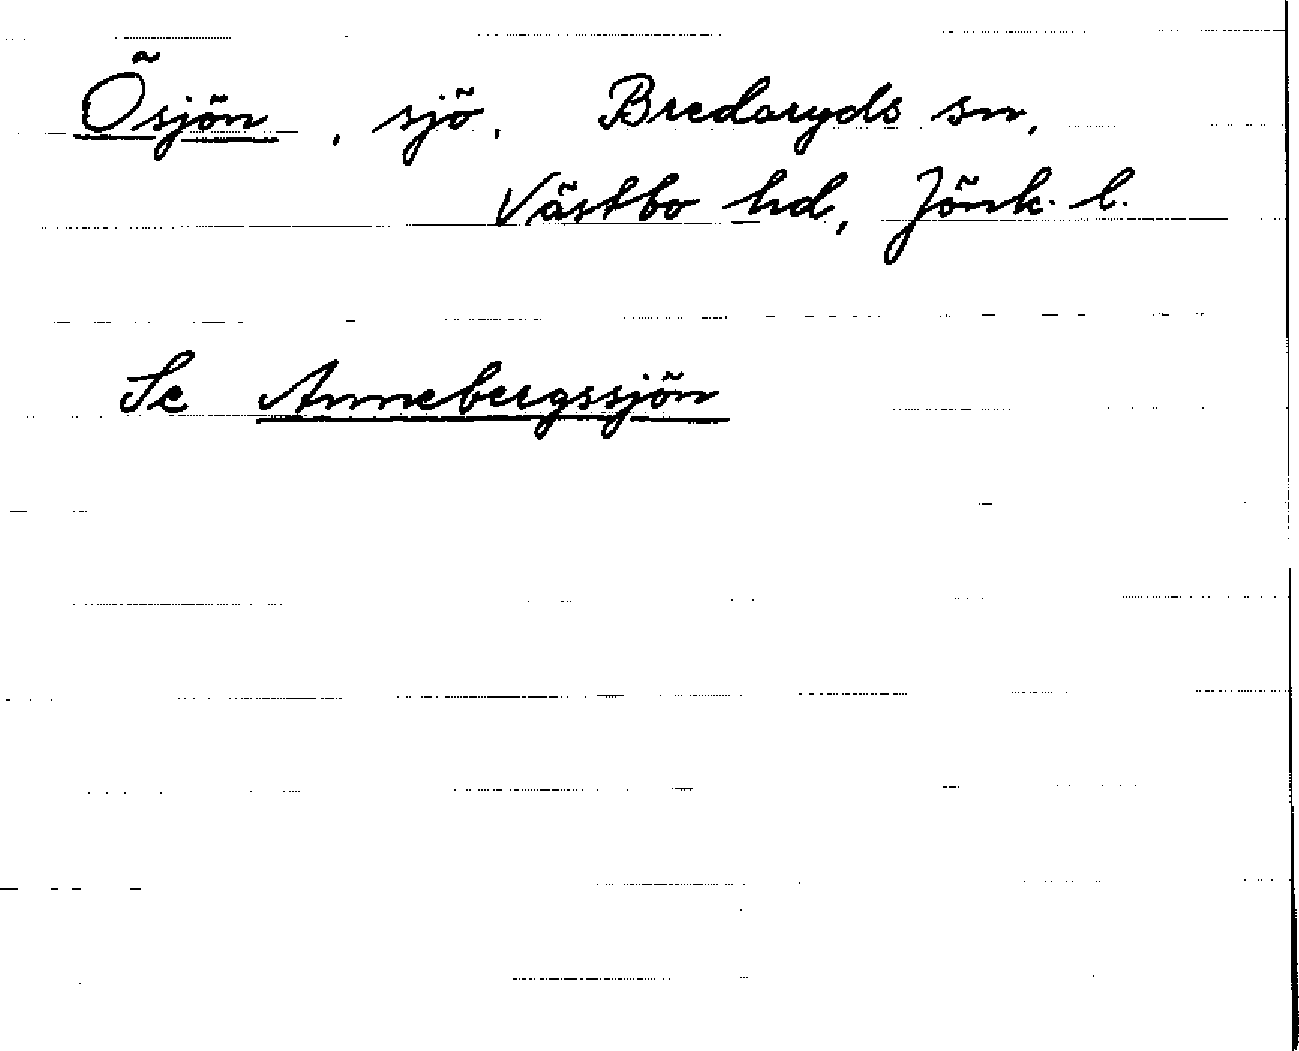 Ösjön, sjö. Bredaryds sn,
Västbo hd, Jönk. l.
Se Annebergssjön